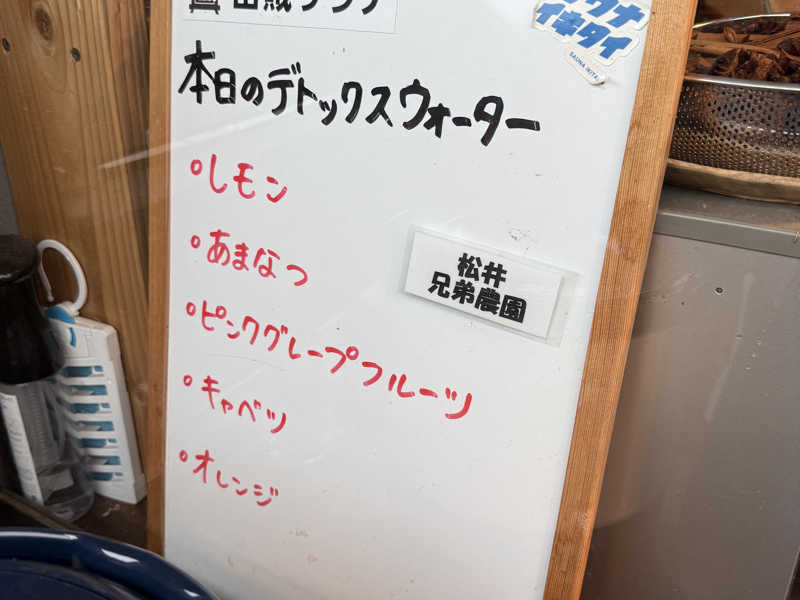 本日のデトックスウォーター
・レモン
・あまなつ
松井
兄弟農園
・ピンクグレープフルーツ
・キャベツ
・オレンジ
イキタイ
SAUNA IKITAI